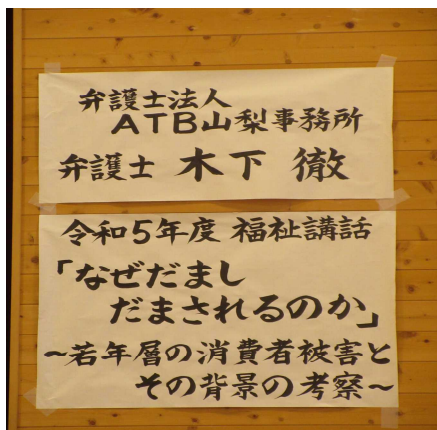 弁護士法人
ATB山梨事務所
弁護士 木下 徹
令和5年度 福祉講話
「なぜだまし
だまされるのか」
~若年層の消費者被害と
その背景の考察~